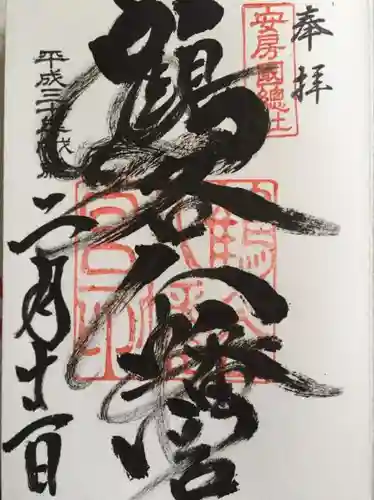 奉拝
安房國總社
鶴谷八幡宮
平成三十年戊戌
二月十一日